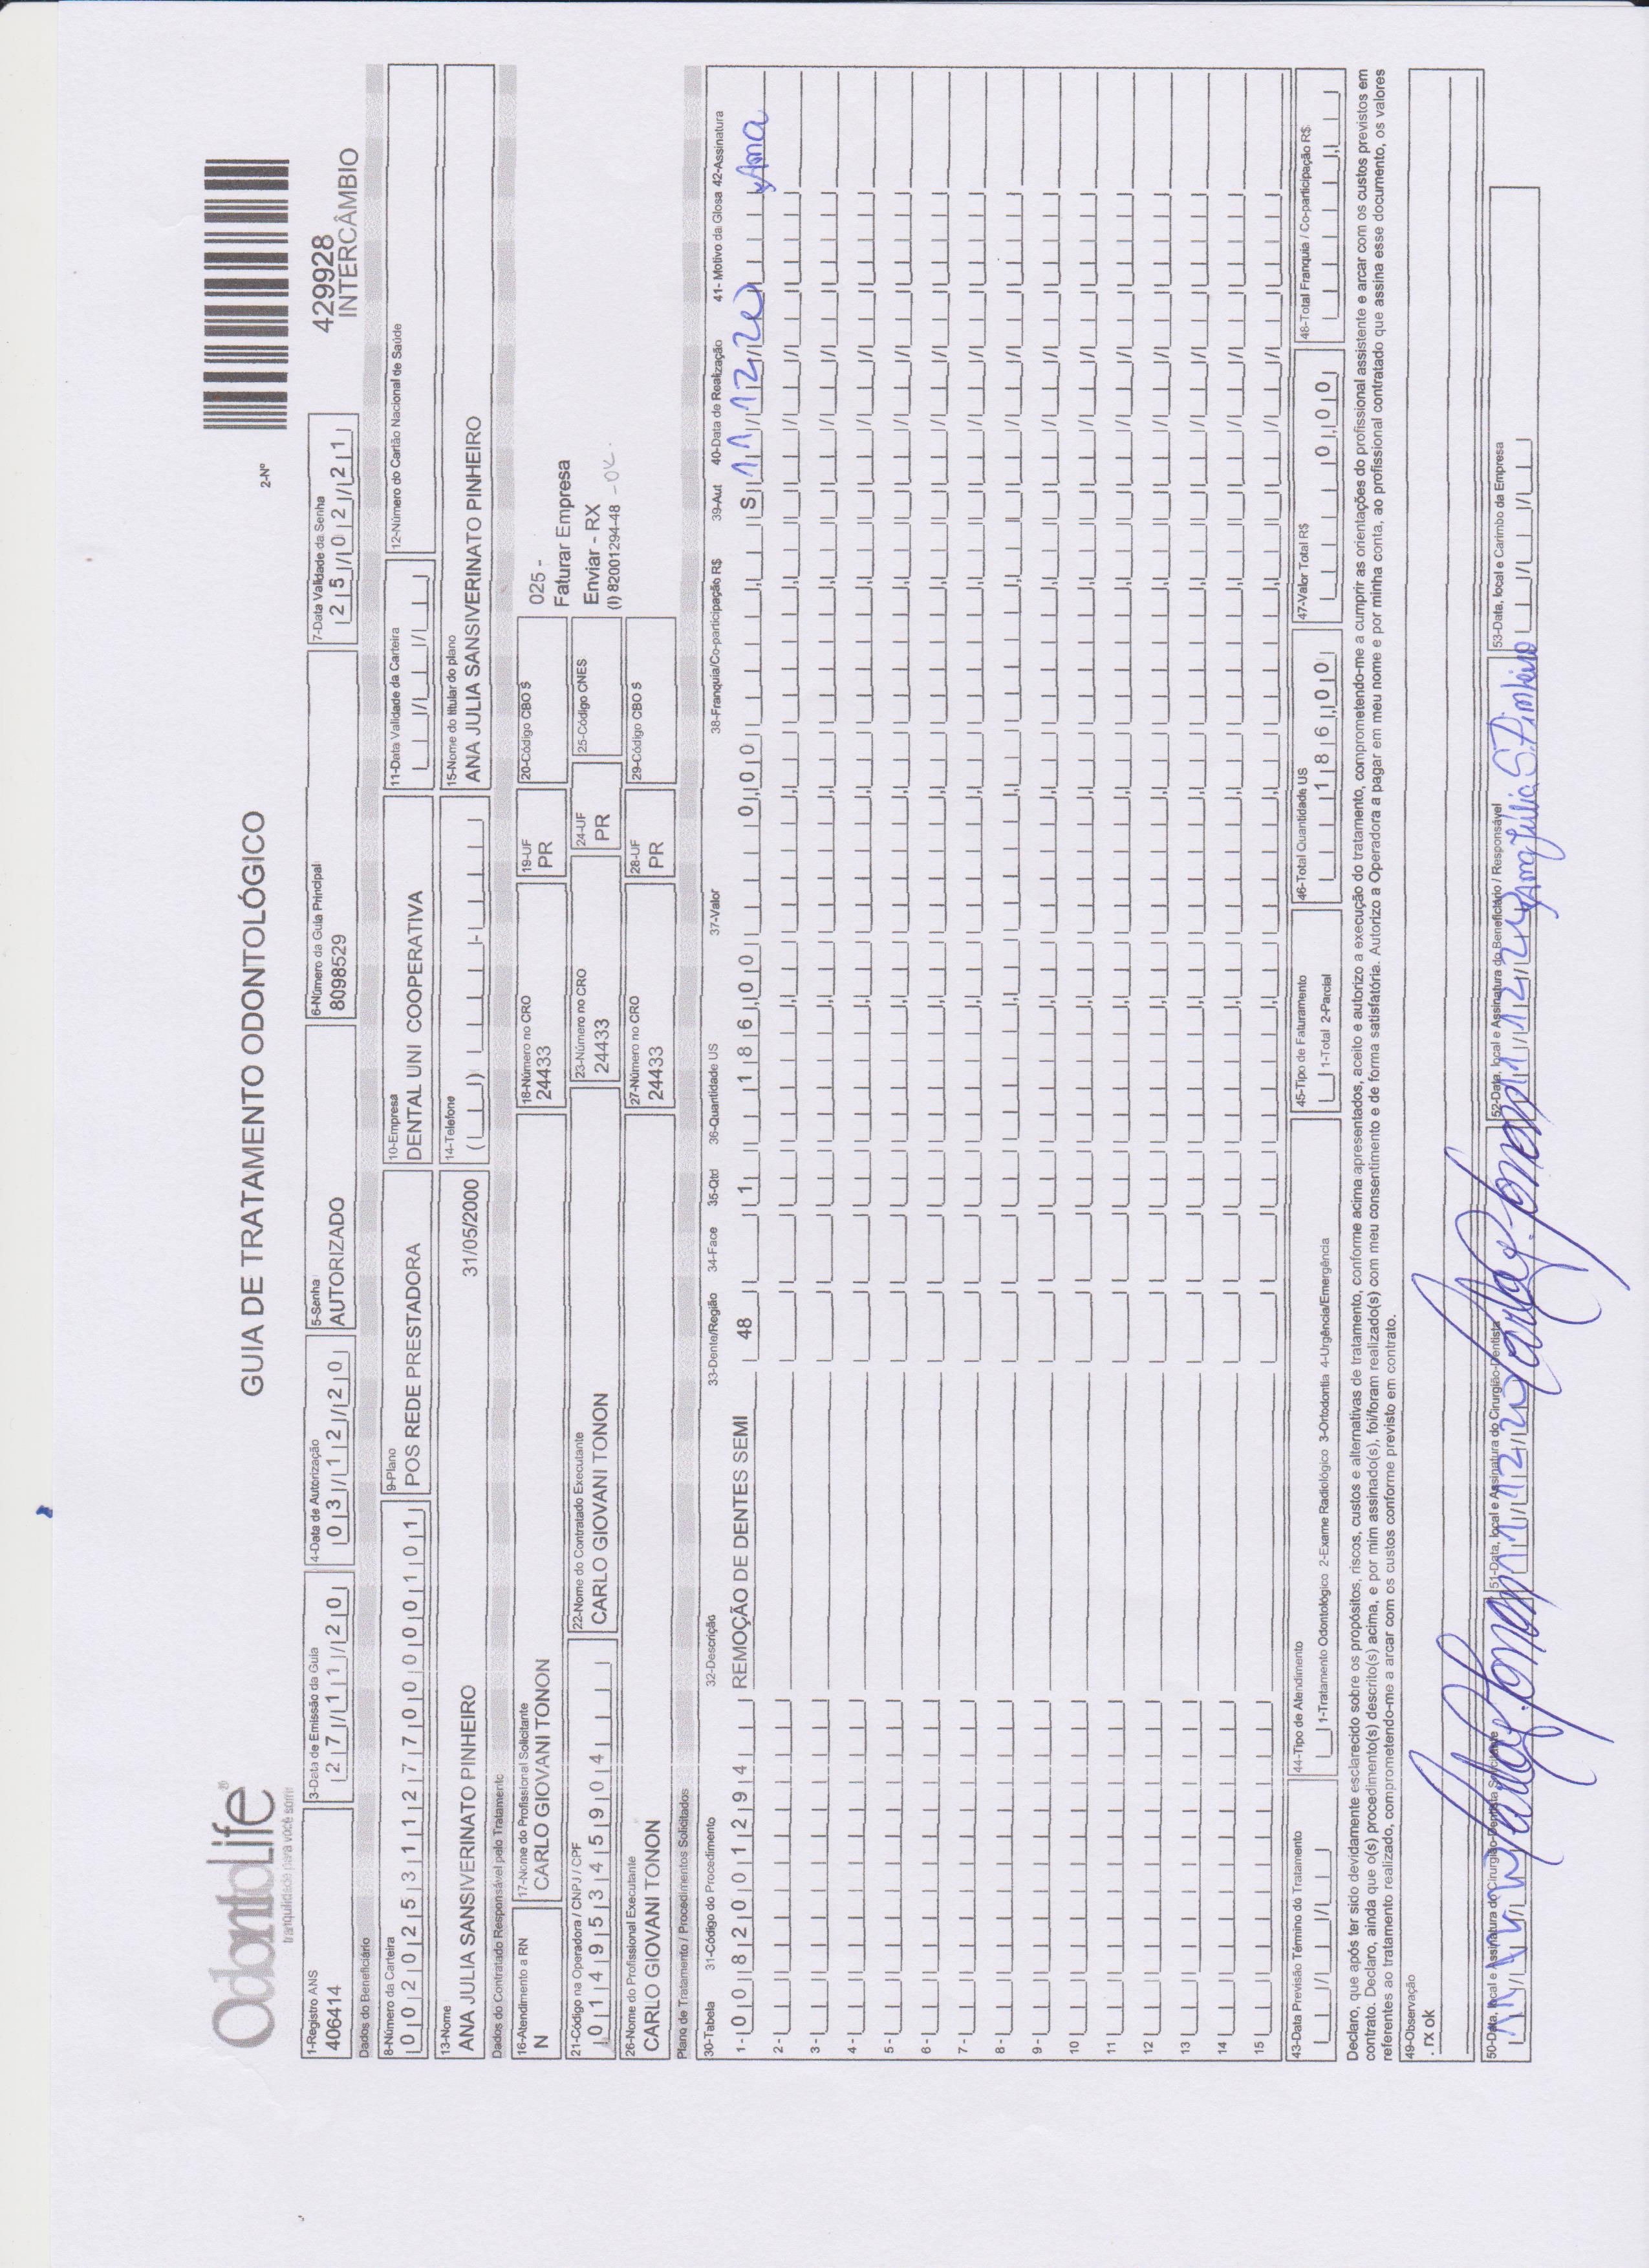 OdontoLife®
tranquilidade para você sorrir
GUIA DE TRATAMENTO ODONTOLÓGICO
2-Nº
429928
INTERCÂMBIO
1-Registro ANS
406414
3-Data de Emissão da Guia
27/11/20
4-Data de Autorização
03/12/20
5-Senha
AUTORIZADO
6-Número da Guia Principal
8098529
7-Data Validade da Senha
25/02/21
Dados do Beneficiário
8-Número da Carteira
00202531127700000101
9-Plano
POS REDE PRESTADORA
10-Empresa
DENTAL UNI COOPERATIVA
11-Data Validade da Carteira
12-Número do Cartão Nacional de Saúde
13-Nome
ANA JULIA SANSIVERINATO PINHEIRO
31/05/2000
14-Telefone
15-Nome do titular do plano
ANA JULIA SANSIVERINATO PINHEIRO
Dados do Contratado Responsável pelo Tratamento
16-Atendimento a RN
N
17-Nome do Profissional Solicitante
CARLO GIOVANI TONON
18-Número no CRO
24433
19-UF
PR
20-Código CBO S
025 -
Faturar Empresa
Enviar - RX
(I) 82001294-48 -OK
21-Código na Operadora / CNPJ / CPF
01495345904
22-Nome do Contratado Executante
CARLO GIOVANI TONON
23-Número no CRO
24433
24-UF
PR
25-Código CNES
26-Nome do Profissional Executante
CARLO GIOVANI TONON
27-Número no CRO
24433
28-UF
PR
29-Código CBO S
Plano de Tratamento / Procedimentos Solicitados
30-Tabela 31-Código do Procedimento 32-Descrição 33-Dente/Região 34-Face 35-Qtd 36-Quantidade US 37-Valor 38-Franquia/Co-participação R$ 39-Aut 40-Data de Realização 41- Motivo da Glosa 42-Assinatura
1 - 00 82001294 REMOÇÃO DE DENTES SEMI 48 1 186,00 0,00 S 11/12/20 Ana
2 -
3 -
4 -
5 -
6 -
7 -
8 -
9 -
10
11
12
13
14
15
43-Data Previsão Término do Tratamento
44-Tipo de Atendimento
1-Tratamento Odontológico 2-Exame Radiológico 3-Ortodontia 4-Urgência/Emergência
45-Tipo de Faturamento
1-Total 2-Parcial
46-Total Quantidade US
186,00
47-Valor Total R$
0,00
48-Total Franquia / Co-participação R$
Declaro, que após ter sido devidamente esclarecido sobre os propósitos, riscos, custos e alternativas de tratamento, conforme acima apresentados, aceito e autorizo a execução do tratamento, comprometendo-me a cumprir as orientações do profissional assistente e arcar com os custos previstos em
contrato. Declaro, ainda que o(s) procedimento(s) descrito(s) acima, e por mim assinado(s), foi/foram realizado(s) com meu consentimento e de forma satisfatória. Autorizo a Operadora a pagar em meu nome e por minha conta, ao profissional contratado que assina esse documento, os valores
referentes ao tratamento realizado, comprometendo-me a arcar com os custos conforme previsto em contrato.
49-Observação
. rx ok
50-Data, local e Assinatura do Cirurgião-Dentista Solicitante
51-Data, local e Assinatura do Cirurgião-Dentista
11/12/20
52-Data, local e Assinatura do Beneficiário / Responsável
11/12/20 Ana Júlia S. Pinheiro
53-Data, local e Carimbo da Empresa